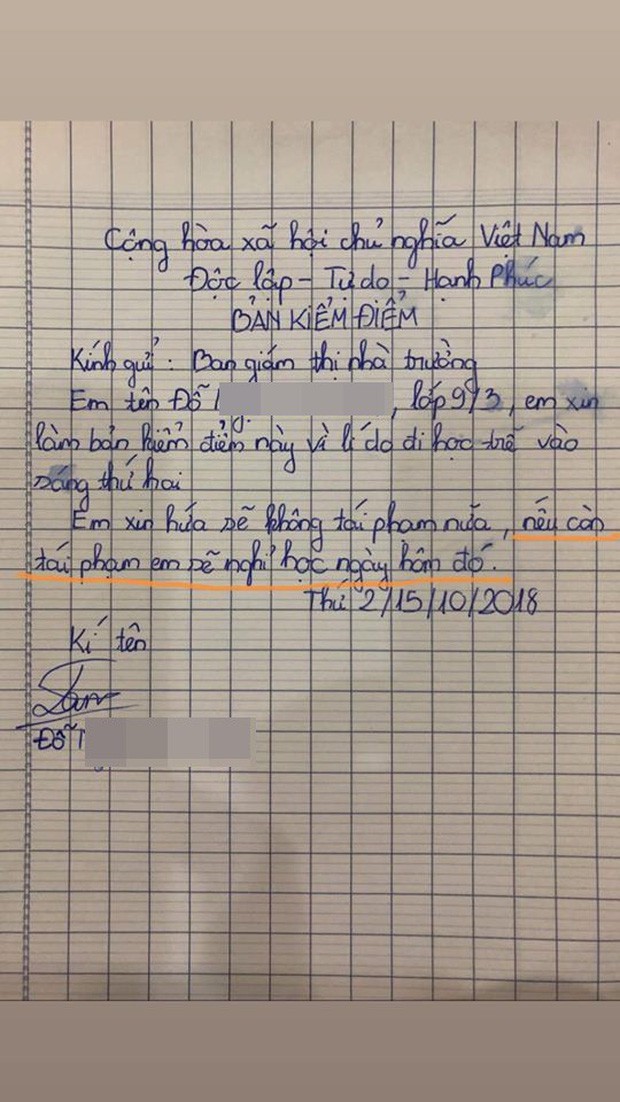 Cộng hòa xã hội chủ nghĩa Việt Nam
Độc lập - Tự do - Hạnh Phúc
BẢN KIỂM ĐIỂM
Kính gửi : Ban giám thị nhà trường
Em tên Đỗ , lớp 9/3, em xin
làm bản kiểm điểm này vì lí do đi học trễ vào
sáng thứ hai
Em xin hứa sẽ không tái phạm nữa, nếu còn
tái phạm em sẽ nghỉ học ngày hôm đó.
Thứ 2/15/10/2018
Kí tên
Đỗ